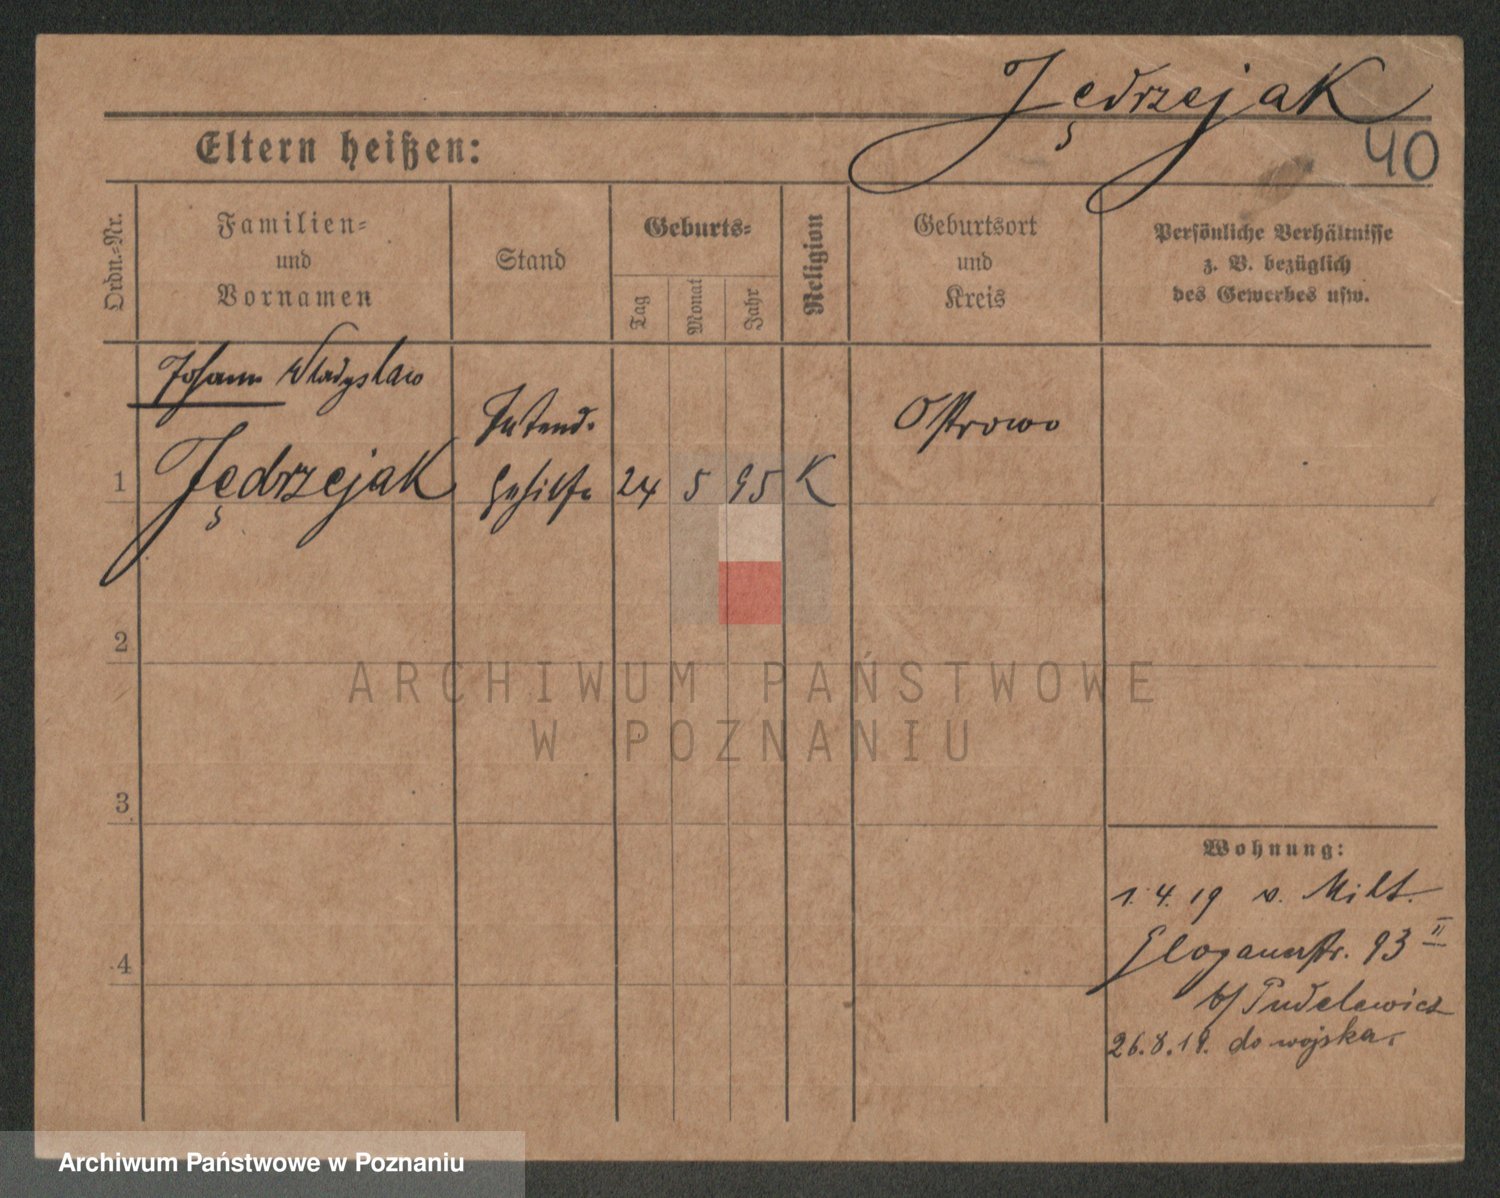 Jędrzejak
Eltern heißen:
40
Ordn.-Nr.
Familien-
und
Vornamen
Stand
Geburts-
Tag
Monat
Jahr
Religion
Geburtsort
und
Kreis
Persönliche Verhältnisse
z. B. bezüglich
des Gewerbes usw.
Johann Wladyslaw
1 Jędrzejak
Intend.
Gehilfe
24 5 95 K
Ostrowo
2
3
4
Wohnung:
1.4.19 v. Milt.
Glogauerstr. 93 II
b/ Pudelewicz
26.8.19. do wojska.
ARCHIWUM PAŃSTWOWE
W POZNANIU
Archiwum Państwowe w Poznaniu